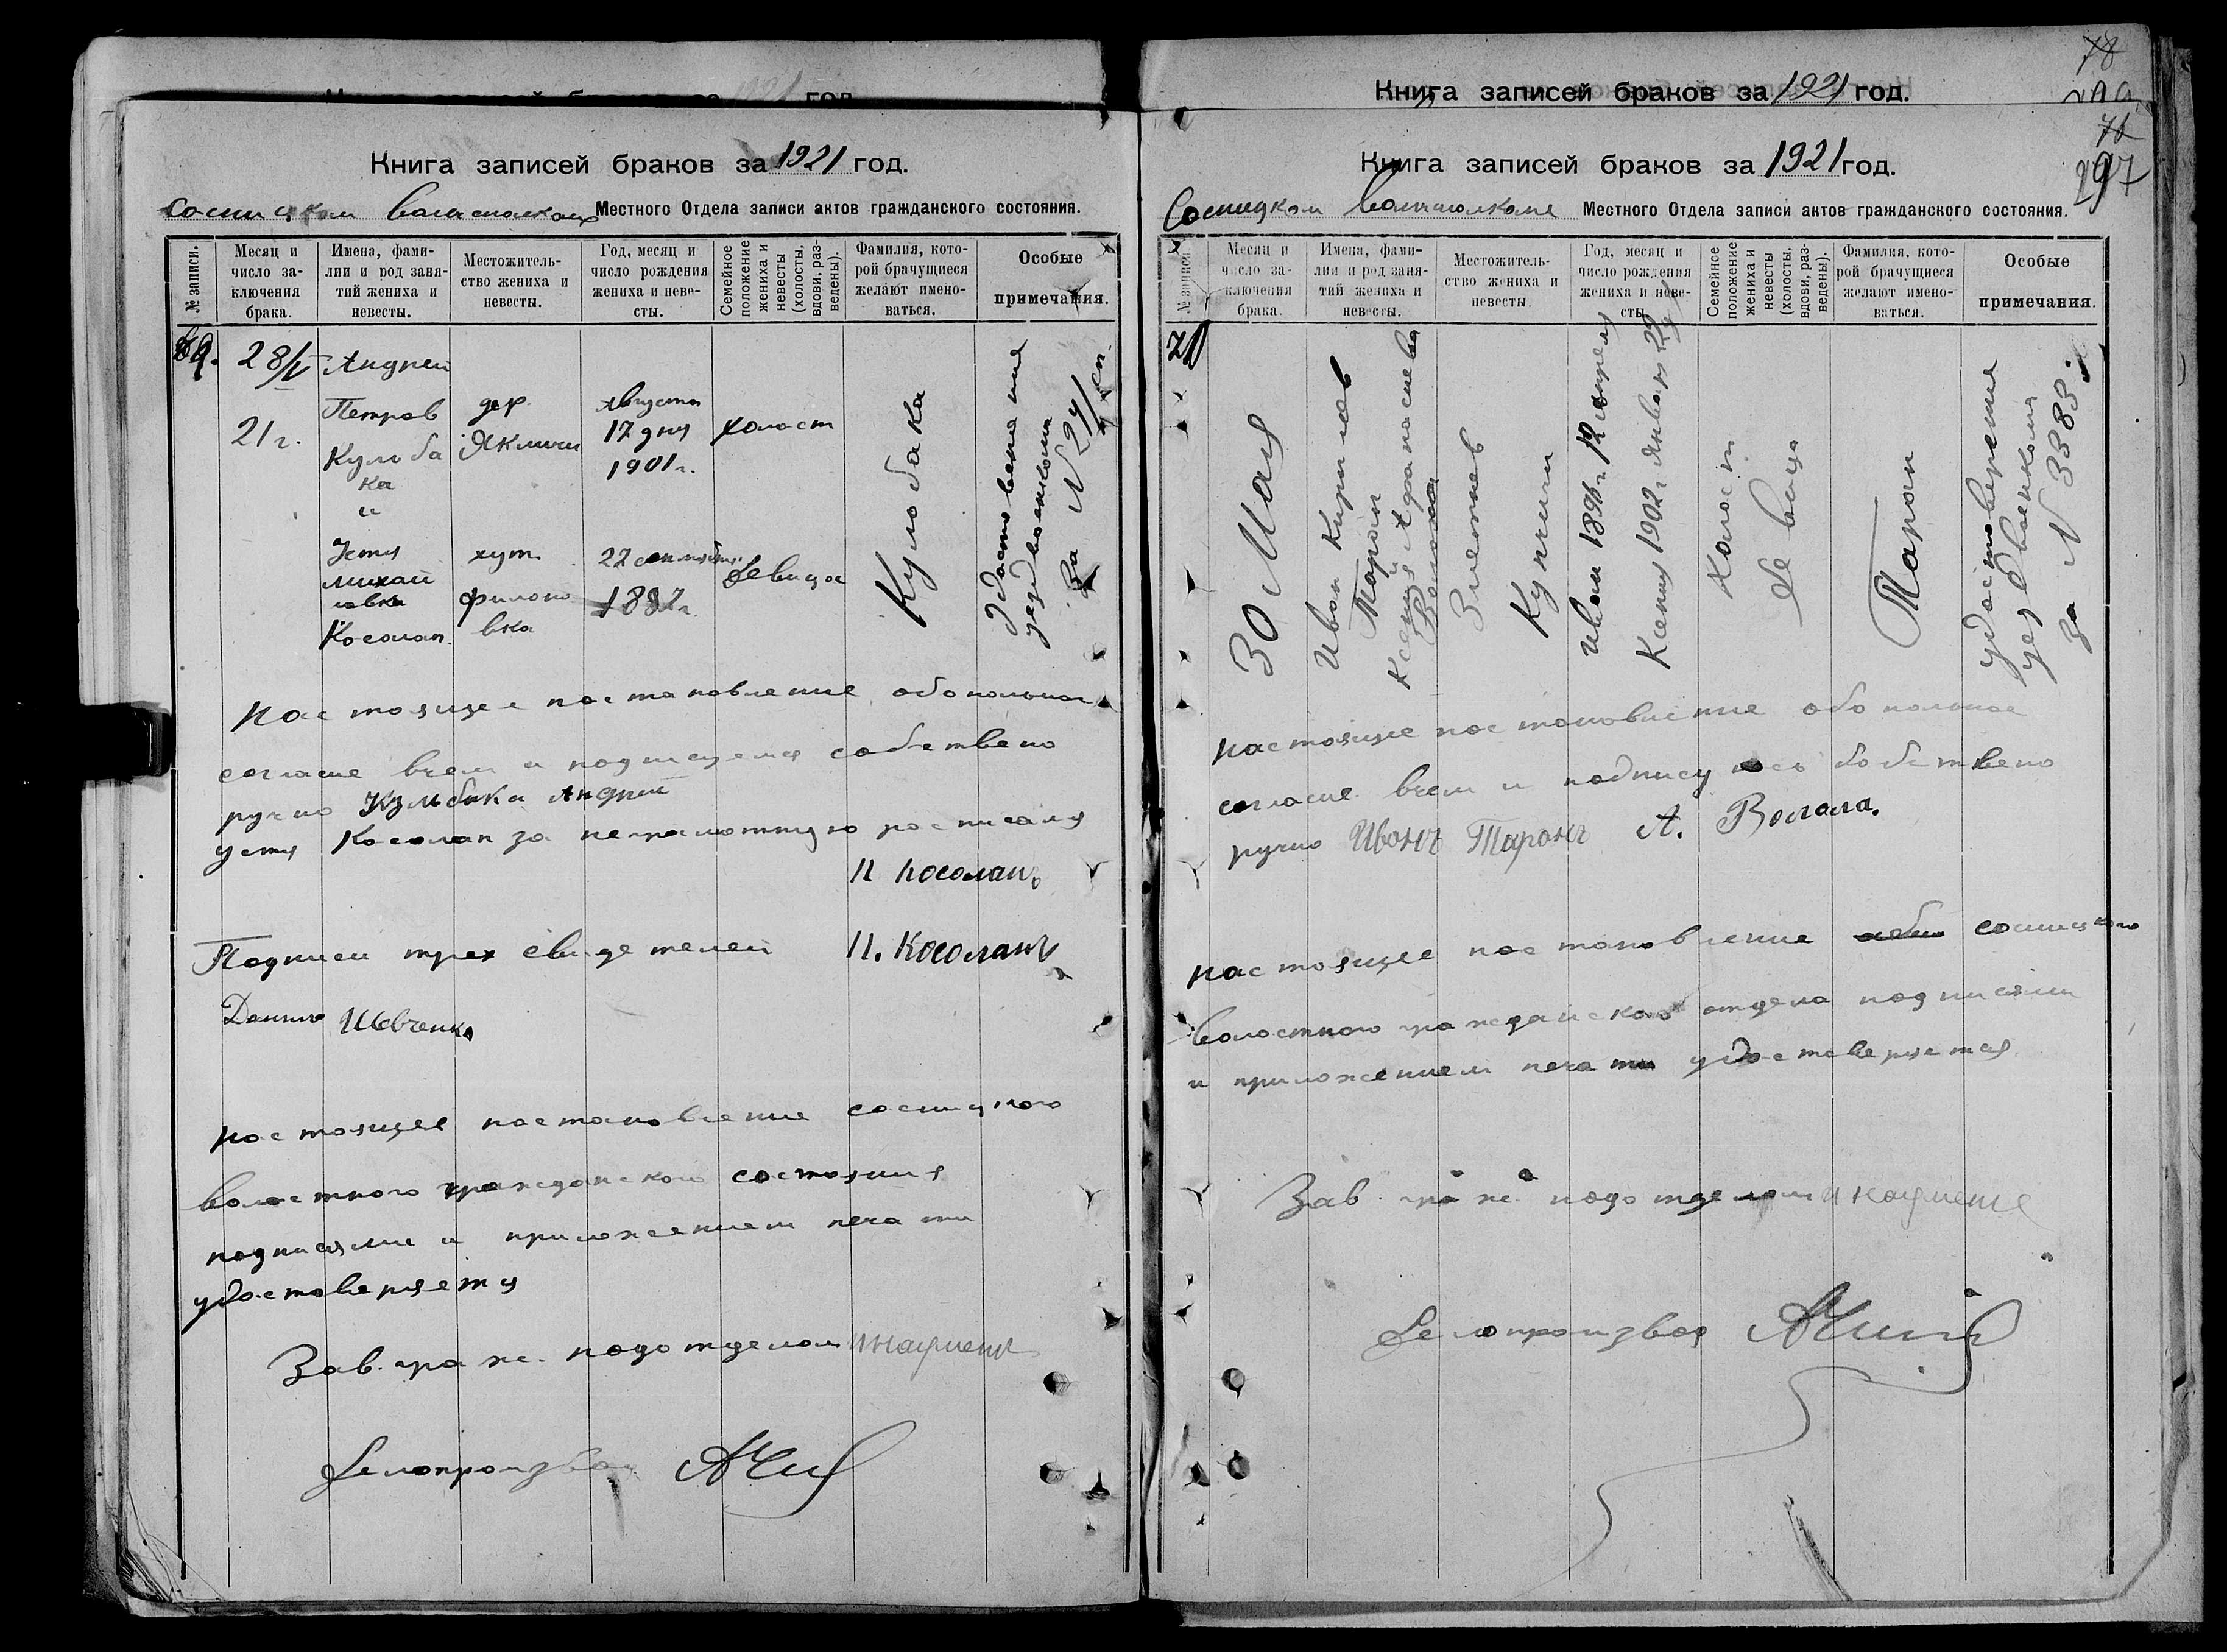 Книга записей браков за 1921 год.
Местного Отдела записи актов гражданского состояния.
№ записи.
Месяц и число заключения брака.
Имена, фамилии и род занятий жениха и невесты.
Местожительство жениха и невесты.
Год, месяц и число рождения жениха и невесты.
Семейное положение жениха и невесты (холосты, вдовы, разведены).
Фамилия, которой брачущиеся желают именоваться.
Особые примечания.
28/V
21 г.
Андрей
Петров
Кульба
ка
и
Устя
Михай
ловна
Косолап.
дер.
Якличи
хут.
Филоно
вка
августа
17 дня
1901 г.
22 сентября
холост
девица
Кульбака
удостоверение
уездвоенкома
за №
настоящее постановление обопольное
согласие вчем и подписуемся собствено
ручно Кульбака Андрей
Устя Косолап за неграмотную росписался
П Косолапъ
Подписи трех свидетелей П. Косолапъ
Данило Шевченко
настоящее постановление сосницкого
волостного гражданского состояния
подписями и приложением печати
удостоверяется
Зав. граж. подотделом
Делопроизвод
78
Книга записей браков за 1921 год.
297
Книга записей браков за 1921 год.
Сосницком Местного Отдела записи актов гражданского состояния.
№ записи.
Месяц и число заключения брака.
Имена, фамилии и род занятий жениха и невесты.
Местожительство жениха и невесты.
Год, месяц и число рождения жениха и невесты.
Семейное положение жениха и невесты (холосты, вдовы, разведены).
Фамилия, которой брачущиеся желают именоваться.
Особые примечания.
30 Мая
Иван Кирилов
Таран
и
Ксения Афанасиева
Кунчин
Иван 12 апреля
Ксения 1902 г. января
Холост
девица
Таран
удостоверение
уездвоенкома
за № 3383
настоящее постановление обопольное
согласие вчем и подписуюсь собствено
ручно Иванъ Таранъ А.
настоящее постановление сосницкого
волостного гражданского отдела подписями
и приложением печати удостоверяется
Зав. граж. подотделом
Делопроизвод